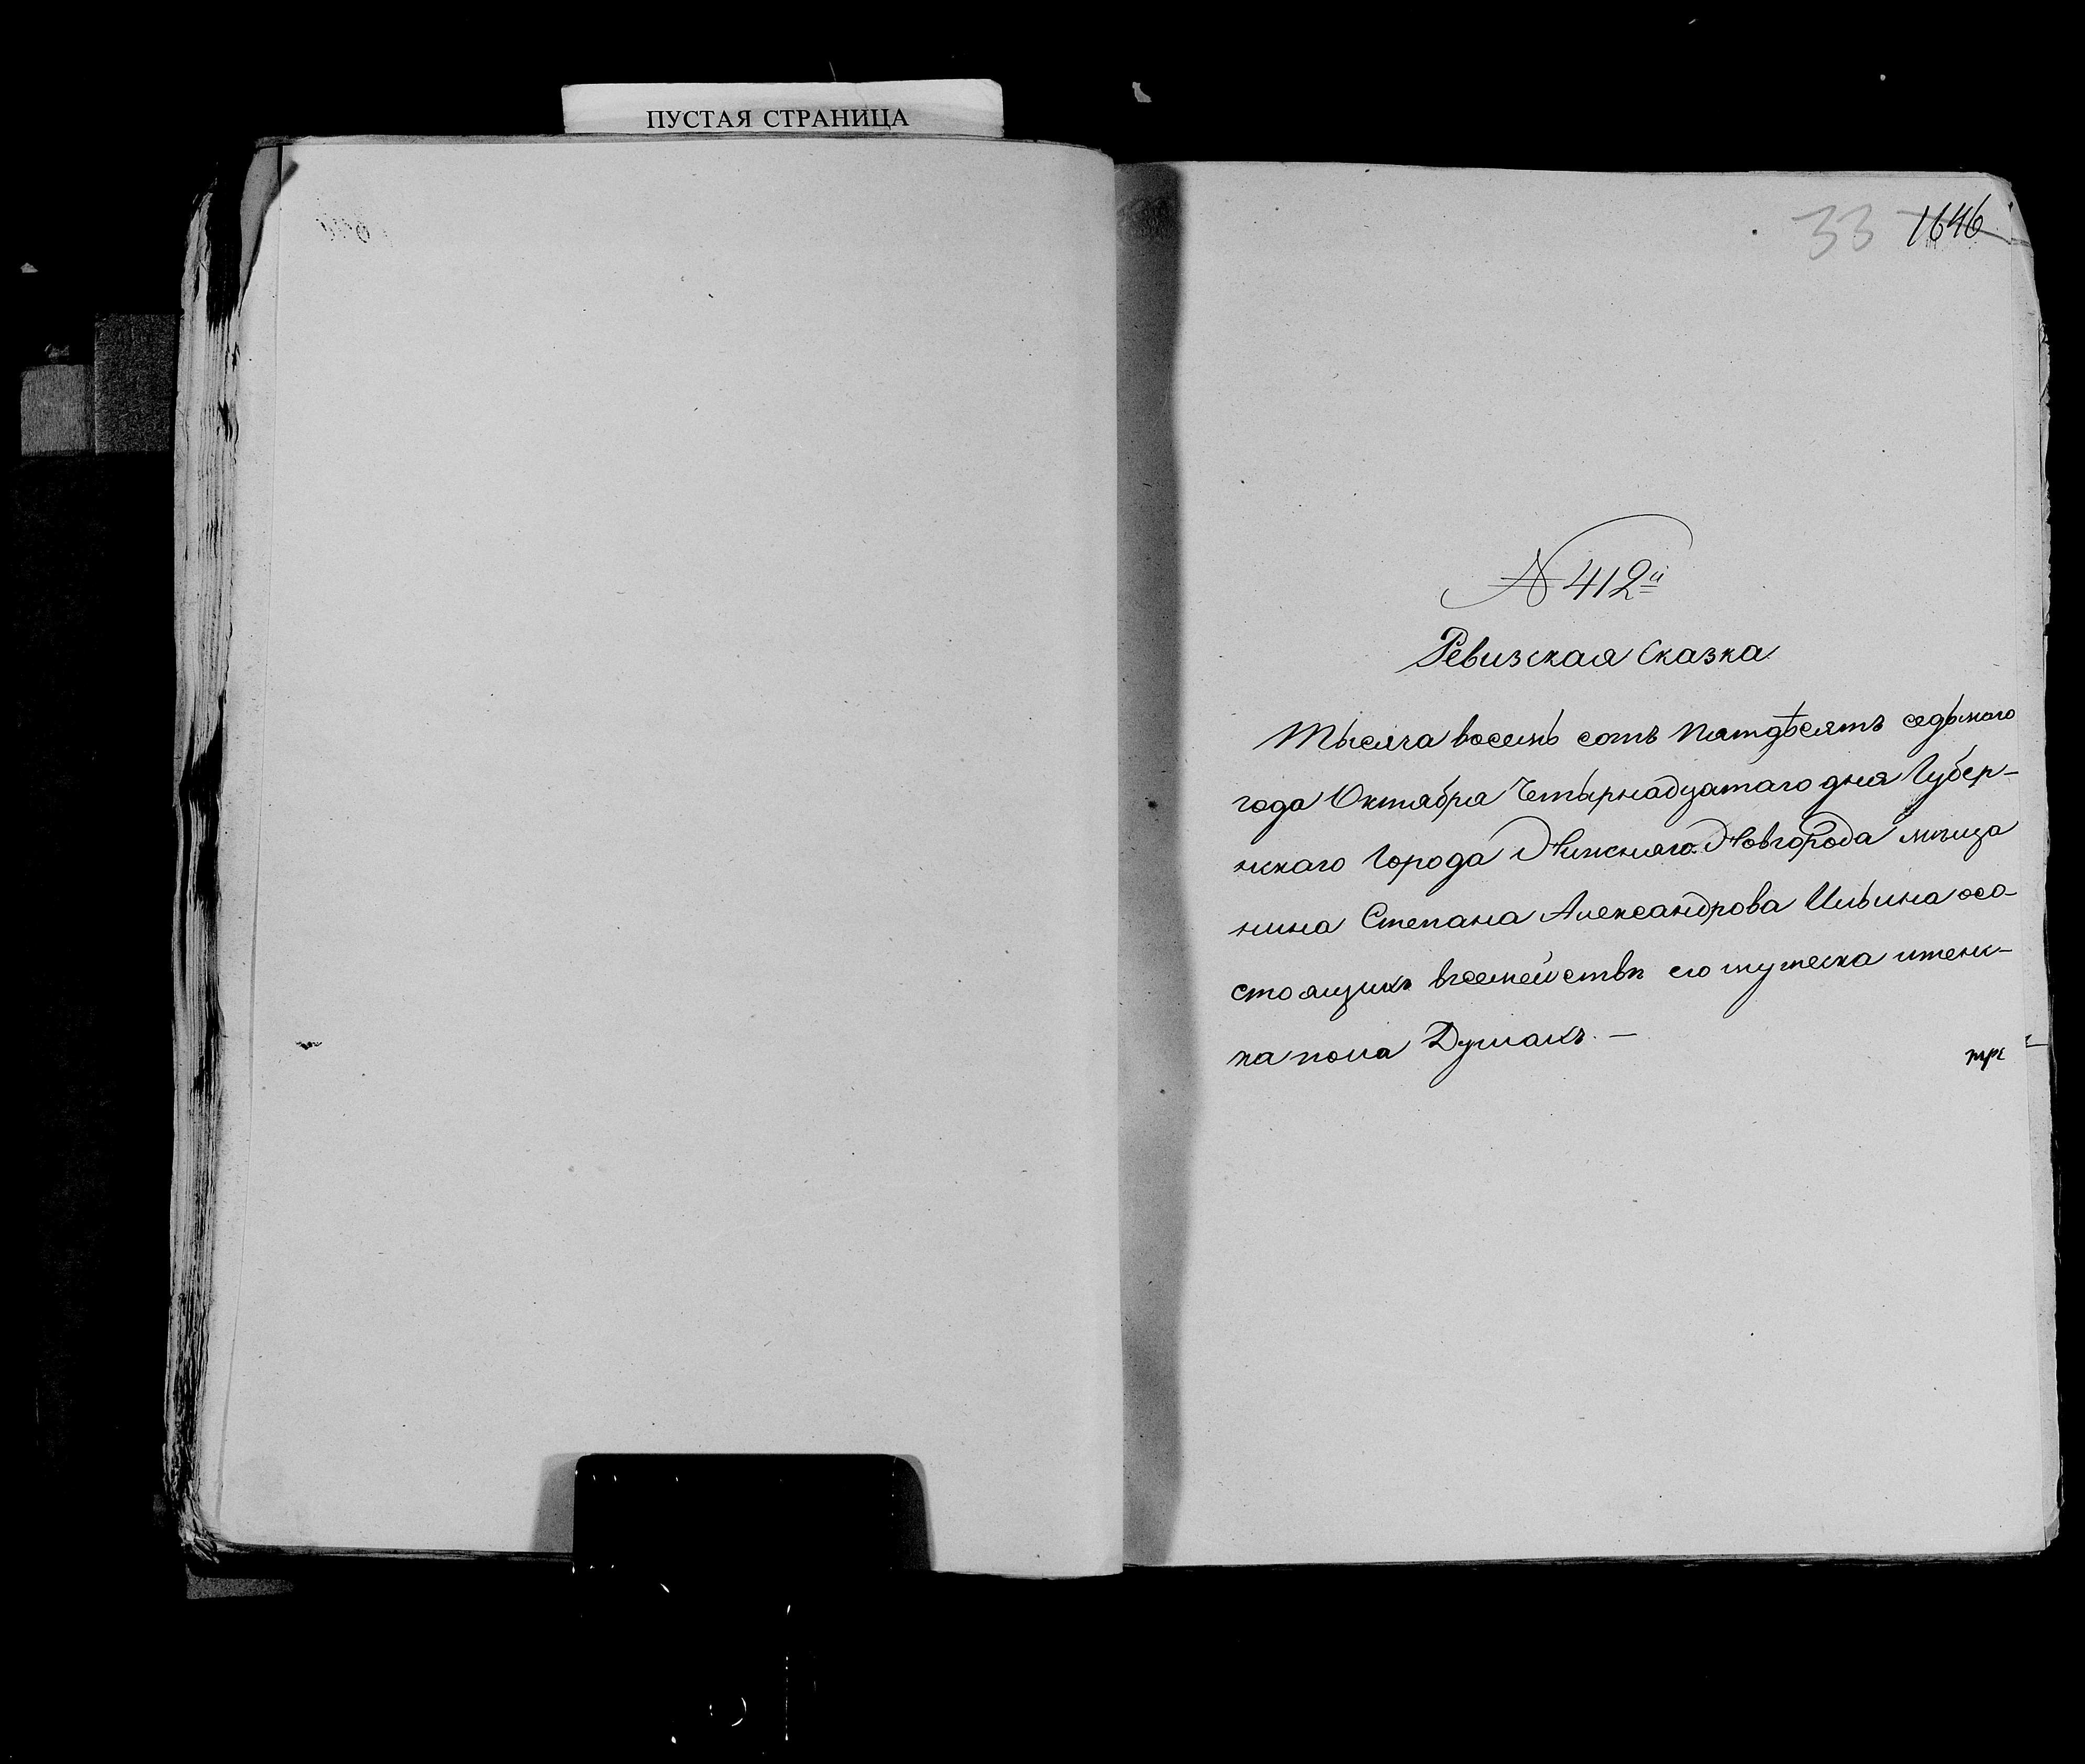 ПУСТАЯ СТРАНИЦА
33 1646
№ 412й
Ревизская Сказка
Тысяча восемь сотъ пятдѣсятъ седьмого
года Октября Четырнадцатаго дня Губер-
нскаго Города Нижняго Новгорода мѣща
нина Степана Александрова Ильина осо-
стоящихъ всемействѣ его мужеска иженс-
ка пола Душахъ. —